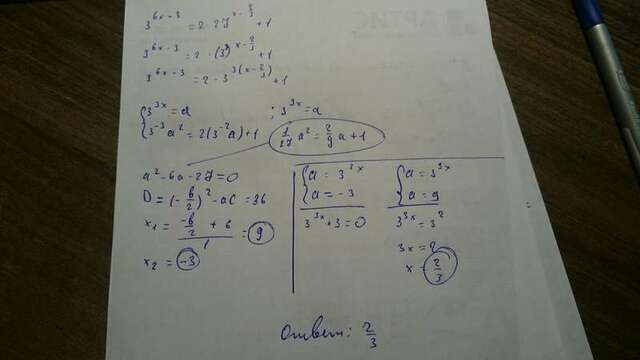 3^{6x-3} = 2·27^{x-2/3} + 1
3^{6x-3} = 2·(3^3)^{x-2/3} + 1
3^{6x-3} = 2·3^{3(x-2/3)} + 1
{3^{3x} = a ; 3^{3x} = a
{3^{-3}a^2 = 2(3^{-2}a) + 1
1/27 a^2 = 2/9 a + 1
a^2 - 6a - 27 = 0
D = (-6/2)^2 - ac = 36
x_1 = (-6/2 + 6)/1 = 9
x_2 = -3
{a = 3^{3x}
{a = -3
3^{3x} + 3 = 0
{a = 3^{3x}
{a = 9
3^{3x} = 3^2
3x = 2
x = 2/3
Ответ: 2/3